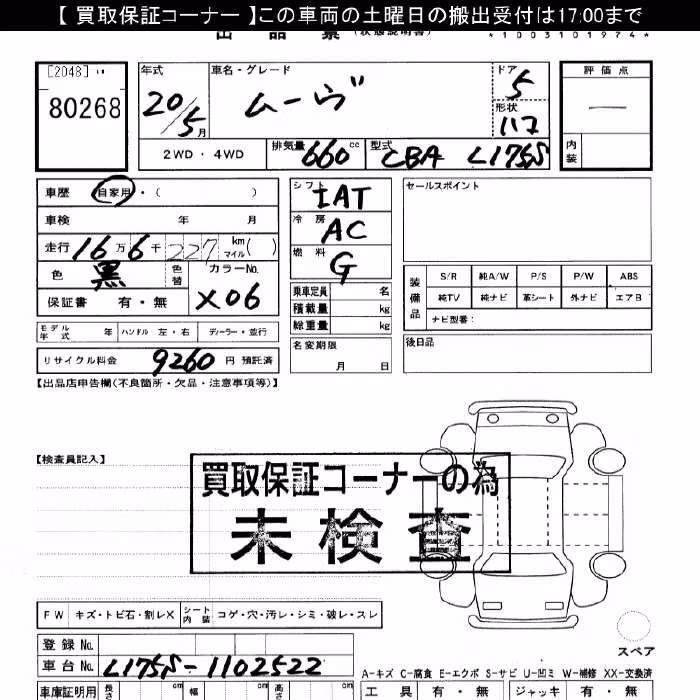 【 買取保証コーナー 】この車両の土曜日の搬出受付は17:00まで
出 品 票 (状態説明書)
*1003101974*
[2048]
80268
年式
20/5月
車名・グレード
ムーヴ
ドア
5
形状
評価点
内装
2WD・4WD
排気量 660 cc
型式 CBA L175S
車歴 自家用・( )
車検 年 月
走行 16万6千227 km マイル( )
色 黒
色替
カラーNo.
X06
保証書 有・無
シフト IAT
冷房 AC
燃料 G
セールスポイント
乗車定員 名
積載量 kg
総重量 kg
装備品
S/R 純A/W P/S P/W ABS
純TV 純ナビ 革シート 外ナビ エアB
ナビ型番:
モデル年式 年 ハンドル 左・右 ディーラー・並行
リサイクル料金 9260 円 預託済
名変期限
月 日
後日品
【出品店申告欄(不良箇所・欠品・注意事項等)】
【検査員記入】
買取保証コーナーの為
未検査
FW キズ・トビ石・割レX シート内装 コゲ・穴・汚レ・シミ・破レ・スレ
スペア
登録No.
車台No. L175S-1102522
A-キズ C-腐食 E-エクボ S-サビ U-凹ミ W-補修 XX-交換済
車庫証明用 長さ cm 幅 cm 高さ cm
工具 有・無 ジャッキ 有・無